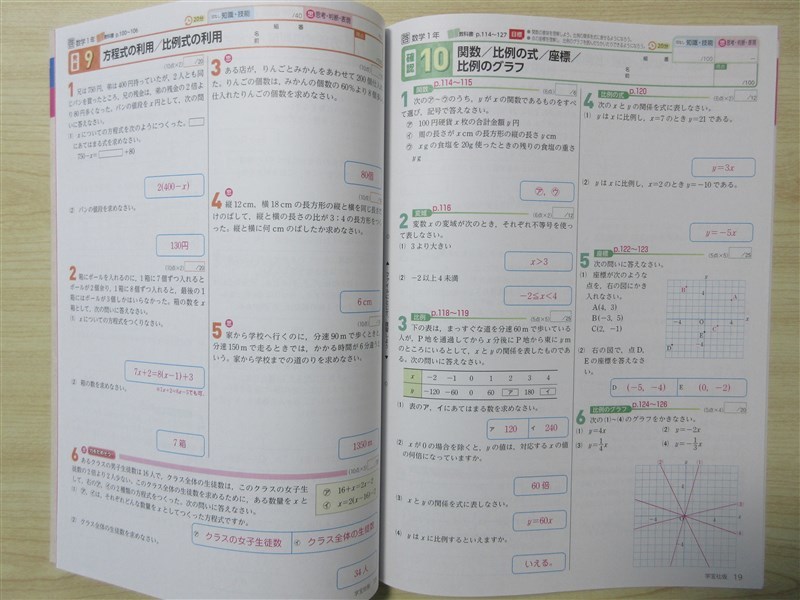 数学1年
教科書 p.100~106
20分
知識・技能
/40
思考・判断・表現
9
方程式の利用/比例式の利用
組
番
名
前
1
兄は750円,弟は400円持っていたが,2人とも同
じパンを買ったところ,兄の残金は,弟の残金の2倍よ
り80円多くなった。パンの値段をx円として,次の問
いに答えなさい。
xについての方程式を次のようにつくった。
にあてはまる式を求めなさい。
750-x= +80
2(400-x)
パンの値段を求めなさい。
130円
2
箱にボールを入れるのに,1箱に7個ずつ入れると
ボールが2個余り,1箱に8個ずつ入れると,最後の1
箱にはボールが3個しかはいらなかった。箱の数をx
箱として,次の問いに答えなさい。
xについての方程式をつくりなさい。
7x+2=8(x-1)+3
箱の数を求めなさい。
7箱
3
ある店が,りんごとみかんをあわせて200個
た。りんごの個数は,みかんの個数の60%より
仕入れたりんごの個数を求めなさい。
80個
4
縦12cm,横18cmの長方形の縦と横を同じ
けのばして,縦と横の長さの比が3:4の長方形をつ
った。縦と横に何cmのばしたか求めなさい。
6cm
5
家から学校へ行くのに,分速90mで歩くと
分速150mで走るときでは,かかる時間が6分違
いう。家から学校までの道のりを求めなさい。
1350m
6
あるクラスの男子生徒数は16人で,クラス全体の生徒数は,このクラスの女子生
徒数の2倍より2人少ない。このクラス全体の生徒数を求めるために,ある数量をxと
して,右の㋐,㋑の2種類の方程式をつくった。次の問いに答えなさい。
㋐ 16+x=2x-2
㋑
㋐,㋑は,それぞれどんな数量をxとしてつくった方程式ですか。
㋐ クラスの女子生徒数
㋑ クラス全体の生徒数
クラス全体の生徒数を求めなさい。
34人
数学1年
教科書 p.114~127
目標
20分
知識・技能
/100
思考・判断・表現
確認
10
関数/比例の式/座標/
比例のグラフ
組
番
名
前
/100
1
関数
p.114~115
次の㋐~㋒のうち,yがxの関数であるものをすべ
て選び,記号で答えなさい。
㋐ 100円硬貨x枚の合計金額y円
㋑ 周の長さがxcmの長方形の縦の長さycm
㋒ xgの食塩を20g使ったときの残りの食塩の重さ
yg
㋐,㋒
2
変域
p.116
変数xの変域が次のとき,それぞれ不等号を使っ
て表しなさい。
(1) 3より大きい
x>3
(2) -2以上4未満
-2≦x<4
3
比例
p.118~119
下の表は,まっすぐな道を分速60mで歩いている
人が,P地を通過してからx分後にP地から東にym
のところにいるとして,xとyの関係を表したものであ
る。次の問いに答えなさい。
x -2 -1 0 1 2 3 4
y -120 -60 0 60 ア 180 イ
(1) 表のア,イにあてはまる数を求めなさい。
ア 120 イ 240
(2) xが0の場合を除くと,yの値は,対応するxの値
の何倍になっていますか。
60倍
(3) xとyの関係を式に表しなさい。
y=60x
(4) yはxに比例するといえますか。
いえる。
4
比例の式
p.120
次のxとyの関係を式に表しなさい。
(1) yはxに比例し,x=7のときy=21である。
y=3x
(2) yはxに比例し,x=2のときy=-10である。
y=-5x
5
座標
p.122~123
次の問いに答えなさい。
(1) 座標が次のような
点を,右の図にかき
入れなさい。
A(4, 3)
B(-3, 5)
C(2, -1)
(2) 右の図で,点D,
Eの座標を答えな
さい。
D (-5, -4) E (0, -2)
6
比例のグラフ
p.124~126
次の(1)~(4)のグラフをかきなさい。
(1) y=4x
(2) y=-2x
(3) y=1/4x
(4) y=-1/3x
学宝社版 19